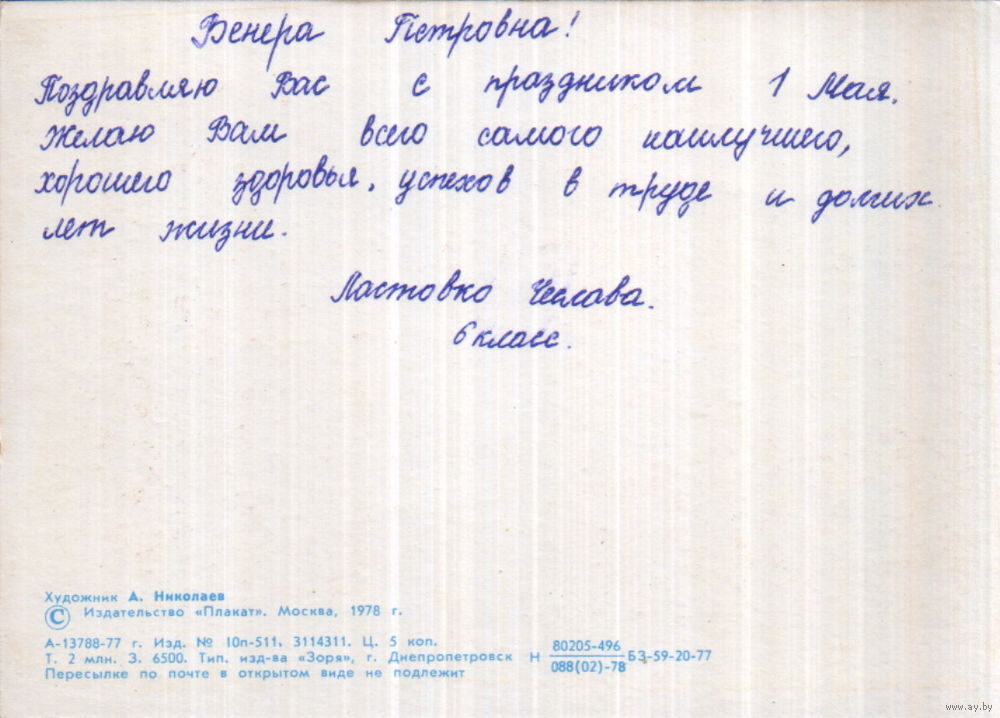 Венера Петровна!
Поздравляю Вас с праздником 1 Мая.
Желаю Вам всего самого наилучшего,
хорошего здоровья, успехов в труде и долгих
лет жизни.
Ластовко Чеслава.
6 класс.
Художник А. Николаев
© Издательство «Плакат». Москва, 1978 г.
А-13788-77 г. Изд. № 10п-511. 3114311. Ц. 5 коп.
Т. 2 млн. З. 6500. Тип. изд-ва «Зоря», г. Днепропетровск Н 80205-496 БЗ-59-20-77
088(02)-78
Пересылке по почте в открытом виде не подлежит
www.ay.by